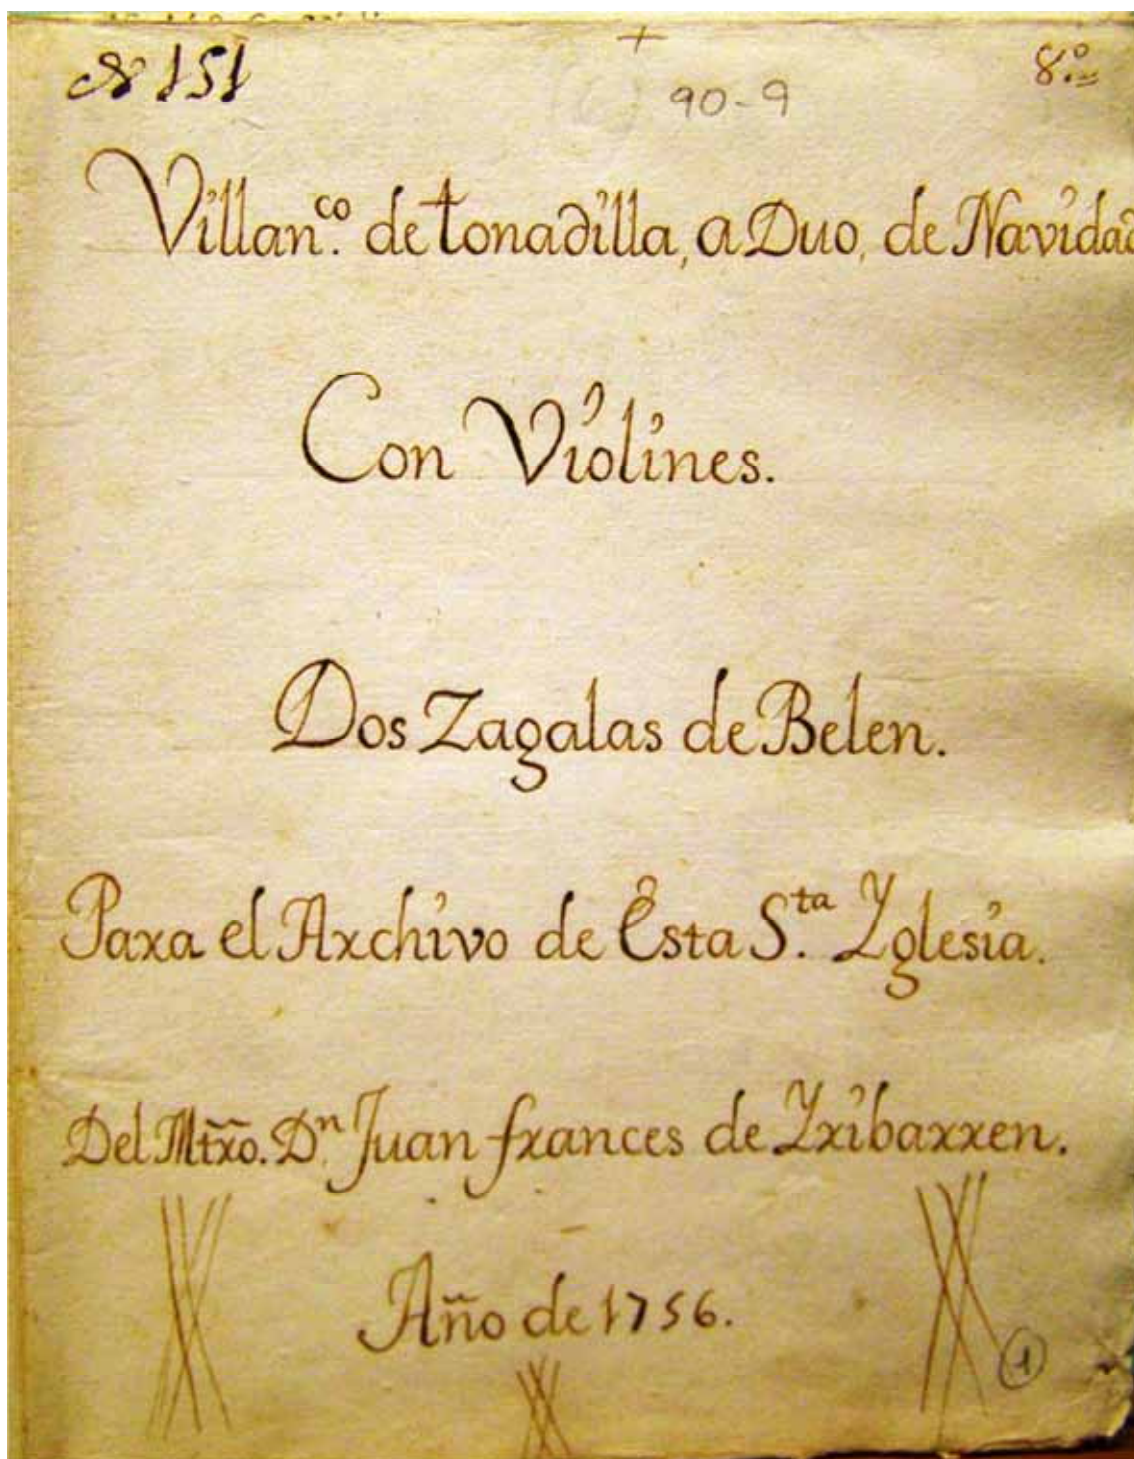 Nº 151
+
8.º
90-9
Villan.co de tonadilla, a Duo, de Navidad
Con Violines.
Dos Zagalas de Belen.
Para el Archivo de Esta S.ta Yglesia.
Del Mtrõ. Dn. Juan frances de Yribarren.
Año de 1756.
1